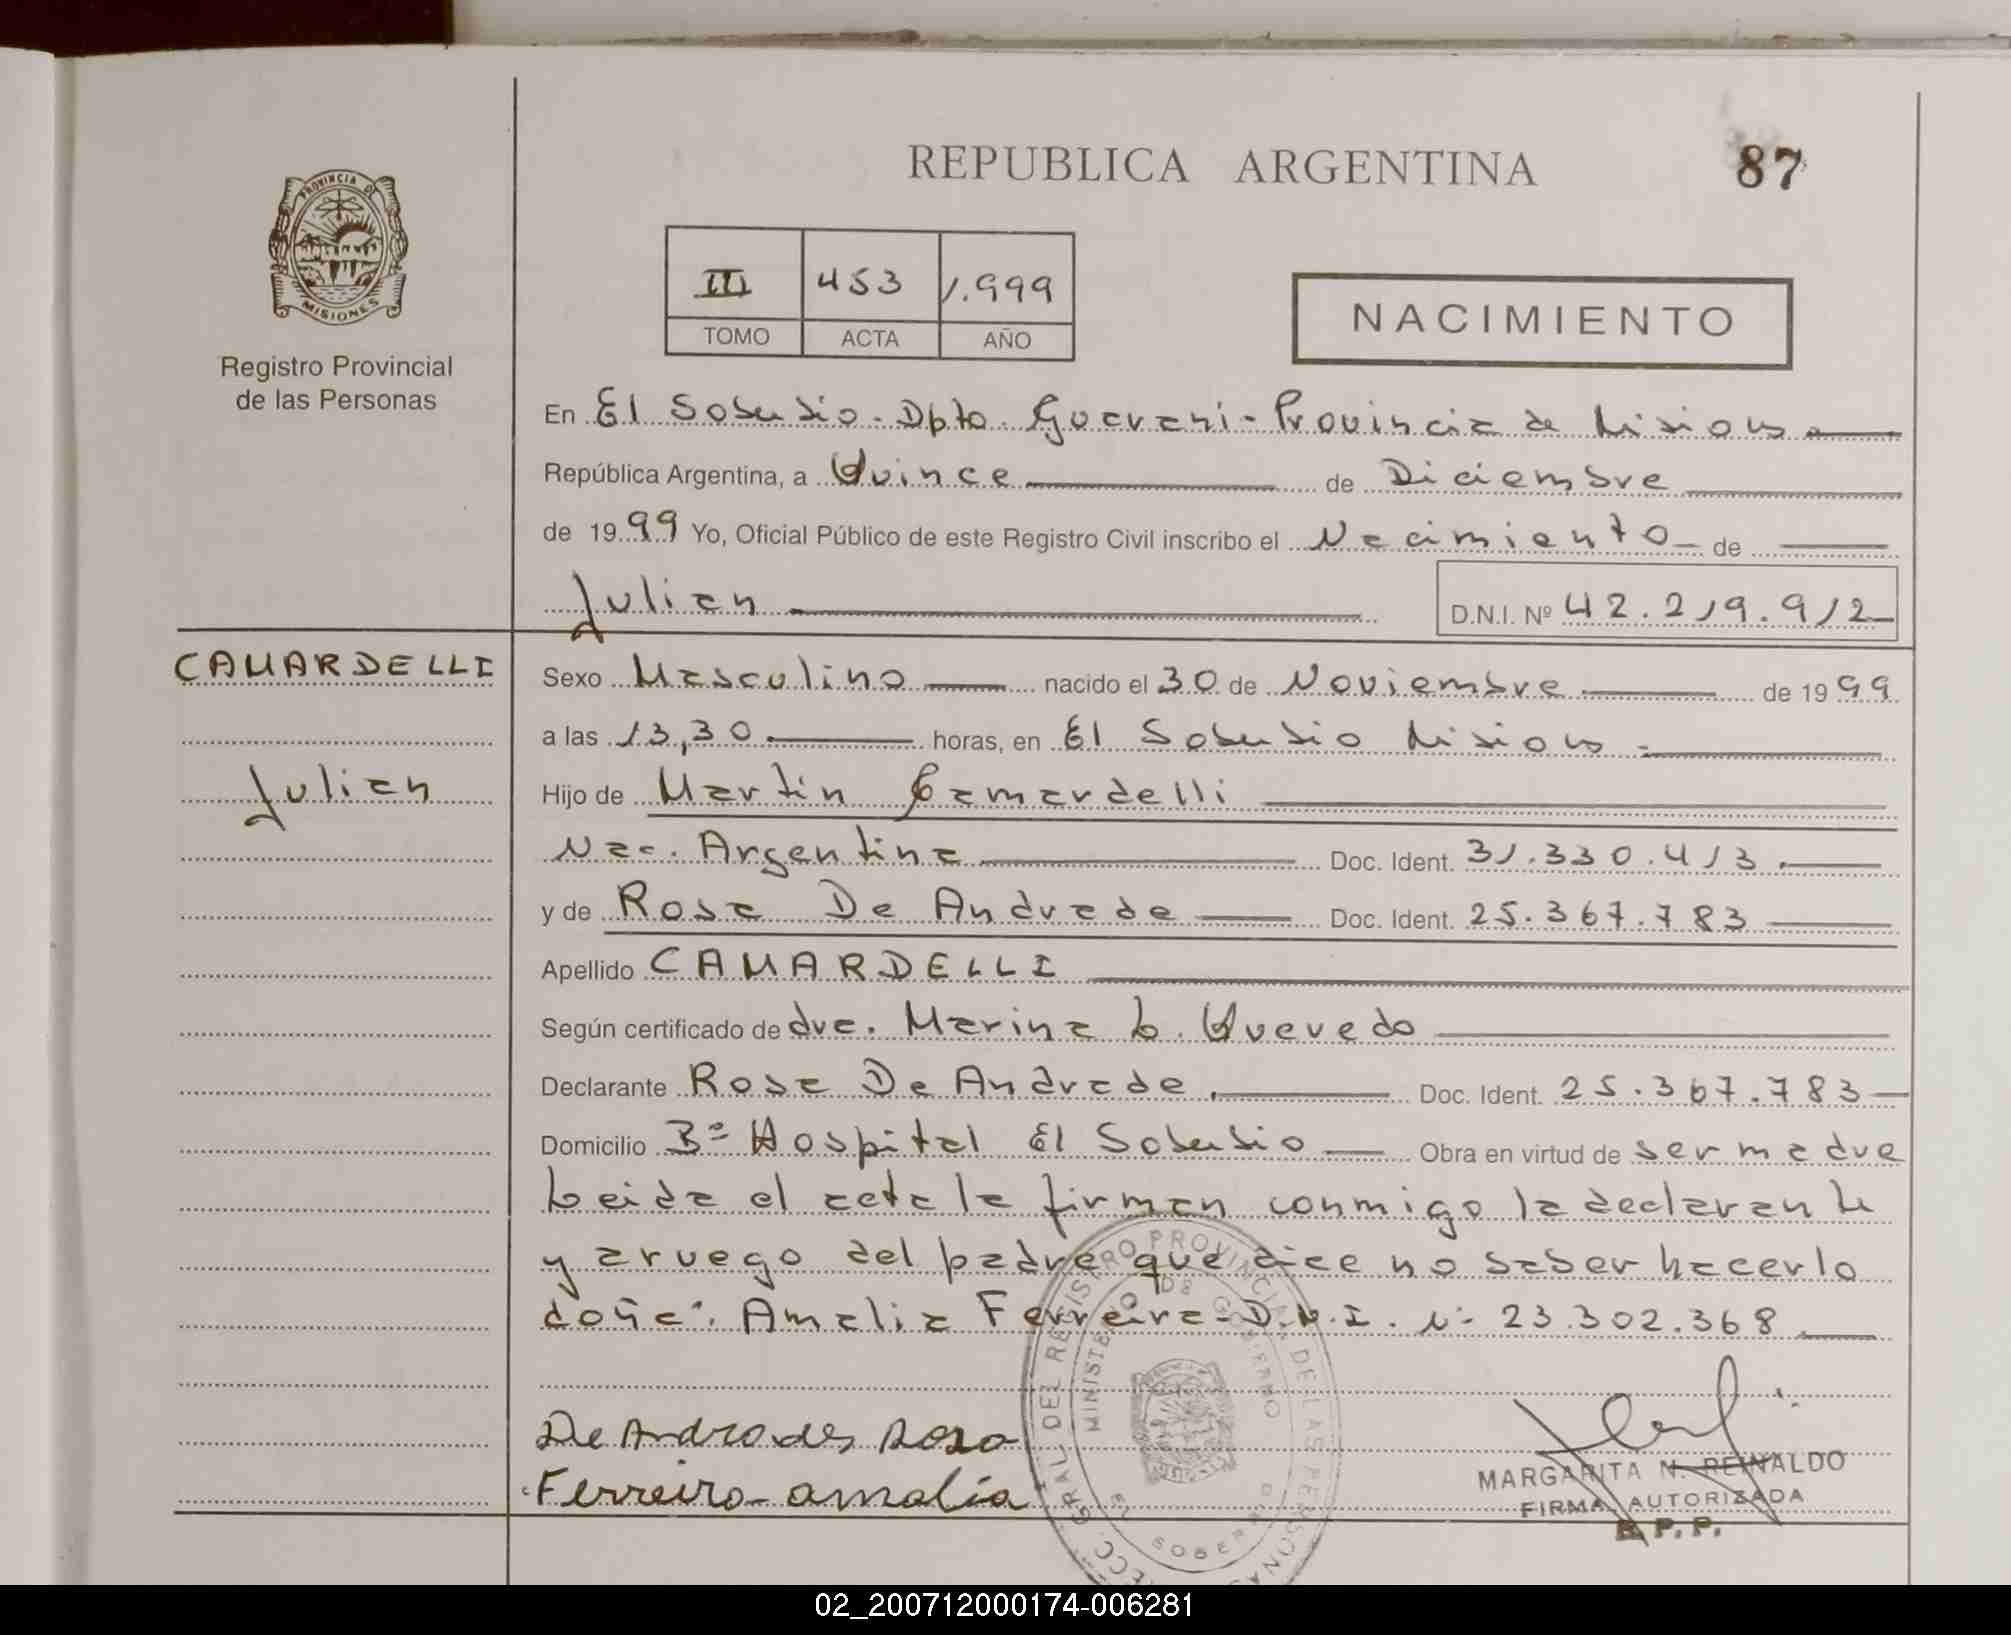 REPUBLICA ARGENTINA
87
PROVINCIA DE
MISIONES
Registro Provincial
de las Personas
III 453 1.999
TOMO ACTA AÑO
NACIMIENTO
En El Soberbio - Dpto. Guarani - Provincia de Misiones
República Argentina, a Quince de Diciembre
de 1999 Yo, Oficial Público de este Registro Civil inscribo el Nacimiento de
Julian D.N.I. Nº 42.219.912
CAMARDELLI
Julian
Sexo Masculino nacido el 30 de Noviembre de 1999
a las 13,30 horas, en El Soberbio Misiones
Hijo de Martin Camardelli
Nac. Argentina Doc. Ident. 31.330.413
y de Rosa De Andrade Doc. Ident. 25.367.783
Apellido CAMARDELLI
Según certificado de dra. Marina L. Quevedo
Declarante Rosa De Andrade Doc. Ident. 25.367.783
Domicilio Bº Hospital El Soberbio Obra en virtud de ser madre
Leida el acta la firman conmigo la declarante
y a ruego del padre que dice no saber hacerlo
doña: Amalia Ferreira - D.N.I. Nº 23.302.368
De Andrades Rosa
Ferreira amalia
DEL REGISTRO PROVINCIAL DE LAS PERSONAS
MINISTERIO DE GOBIERNO
MARGARITA N. REINALDO
FIRMA AUTORIZADA
R. P. P.
02_200712000174-006281